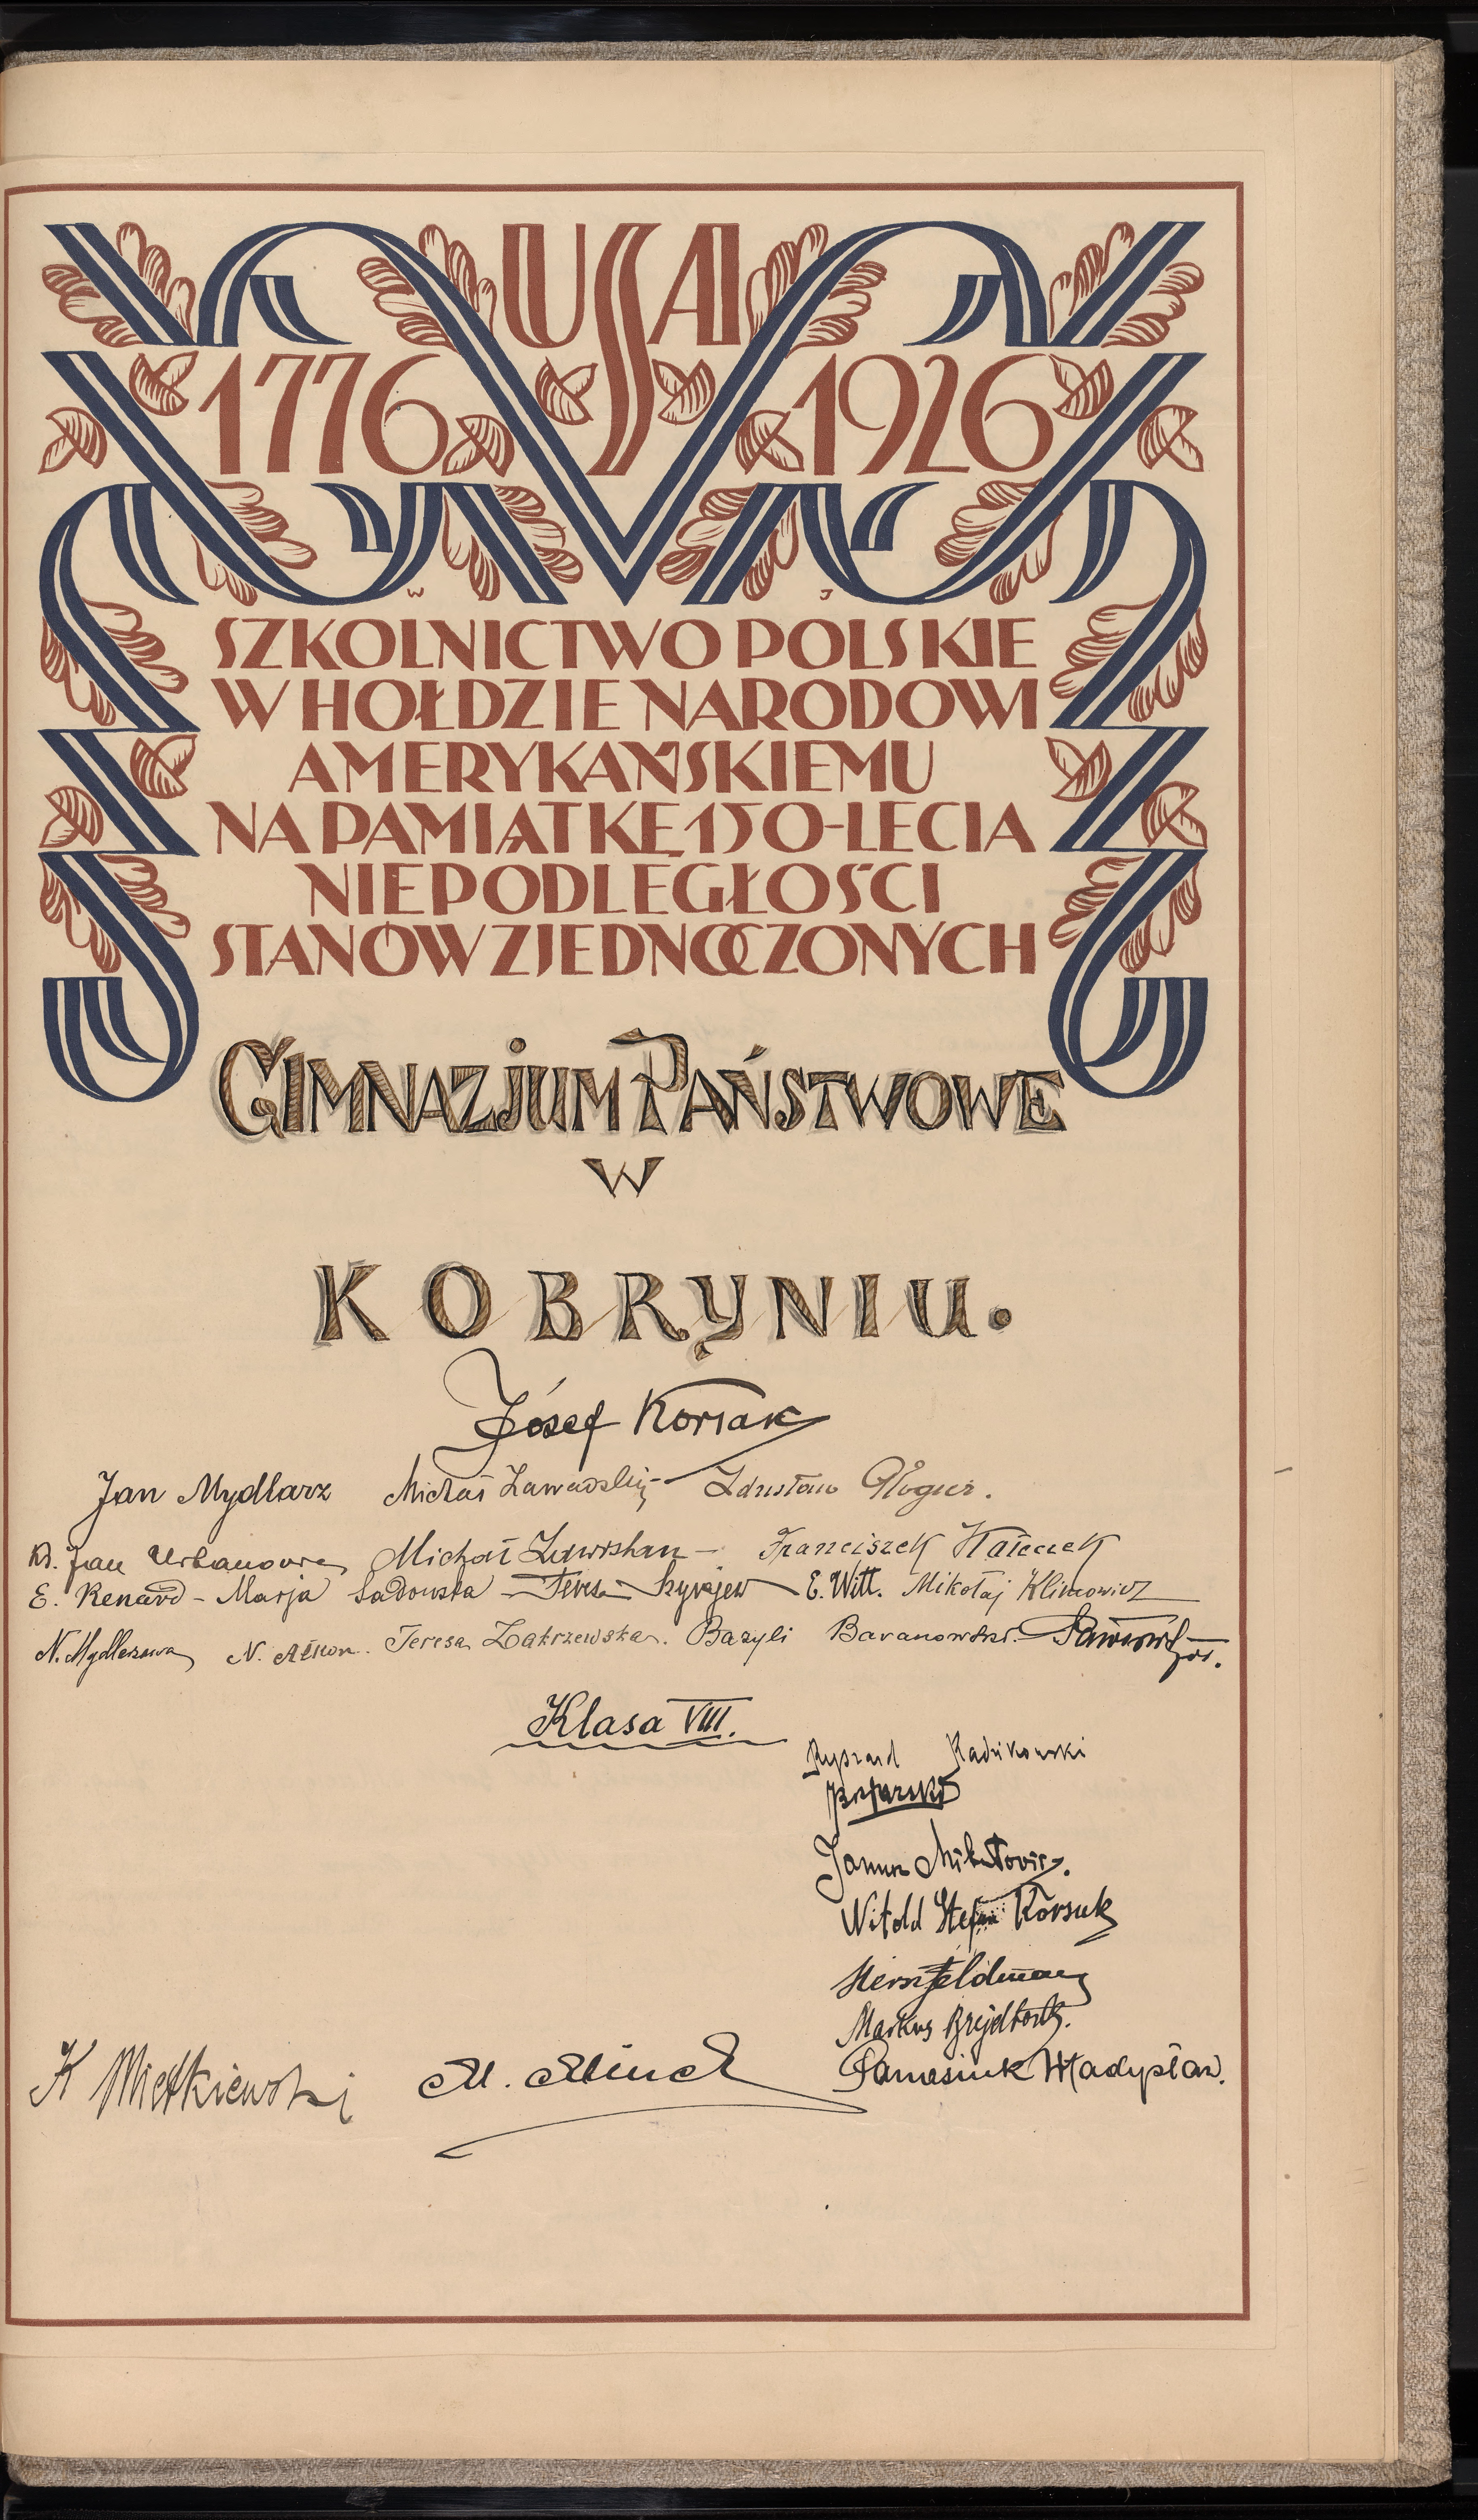 USA
1776 1926
W J
SZKOLNICTWO POLSKIE
W HOŁDZIE NARODOWI
AMERYKAŃSKIEMU
NA PAMIĄTKĘ 150-LECIA
NIEPODLEGŁOŚCI
STANÓW ZJEDNOCZONYCH
GIMNAZJUM PAŃSTWOWE
W
KOBRYNIU.
Józef Korsak
Jan Mydlarz Michał Zawadzki Zdzisław Gloger.
Ks. Jan Michał Franciszek
E. Renard - Marja Sadowska - Teresa E. Witt. Mikołaj Klimowicz
N. Mydlarzowa N. Teresa Zakrzewska. Bazyli Baranowski.
Klasa VIII.
Ryszard Radzikowski
Janusz
Witold Stefan Korsuk
Hersz Feldman
Markus
Panasiuk Władysław.
K Mietkiewski M.